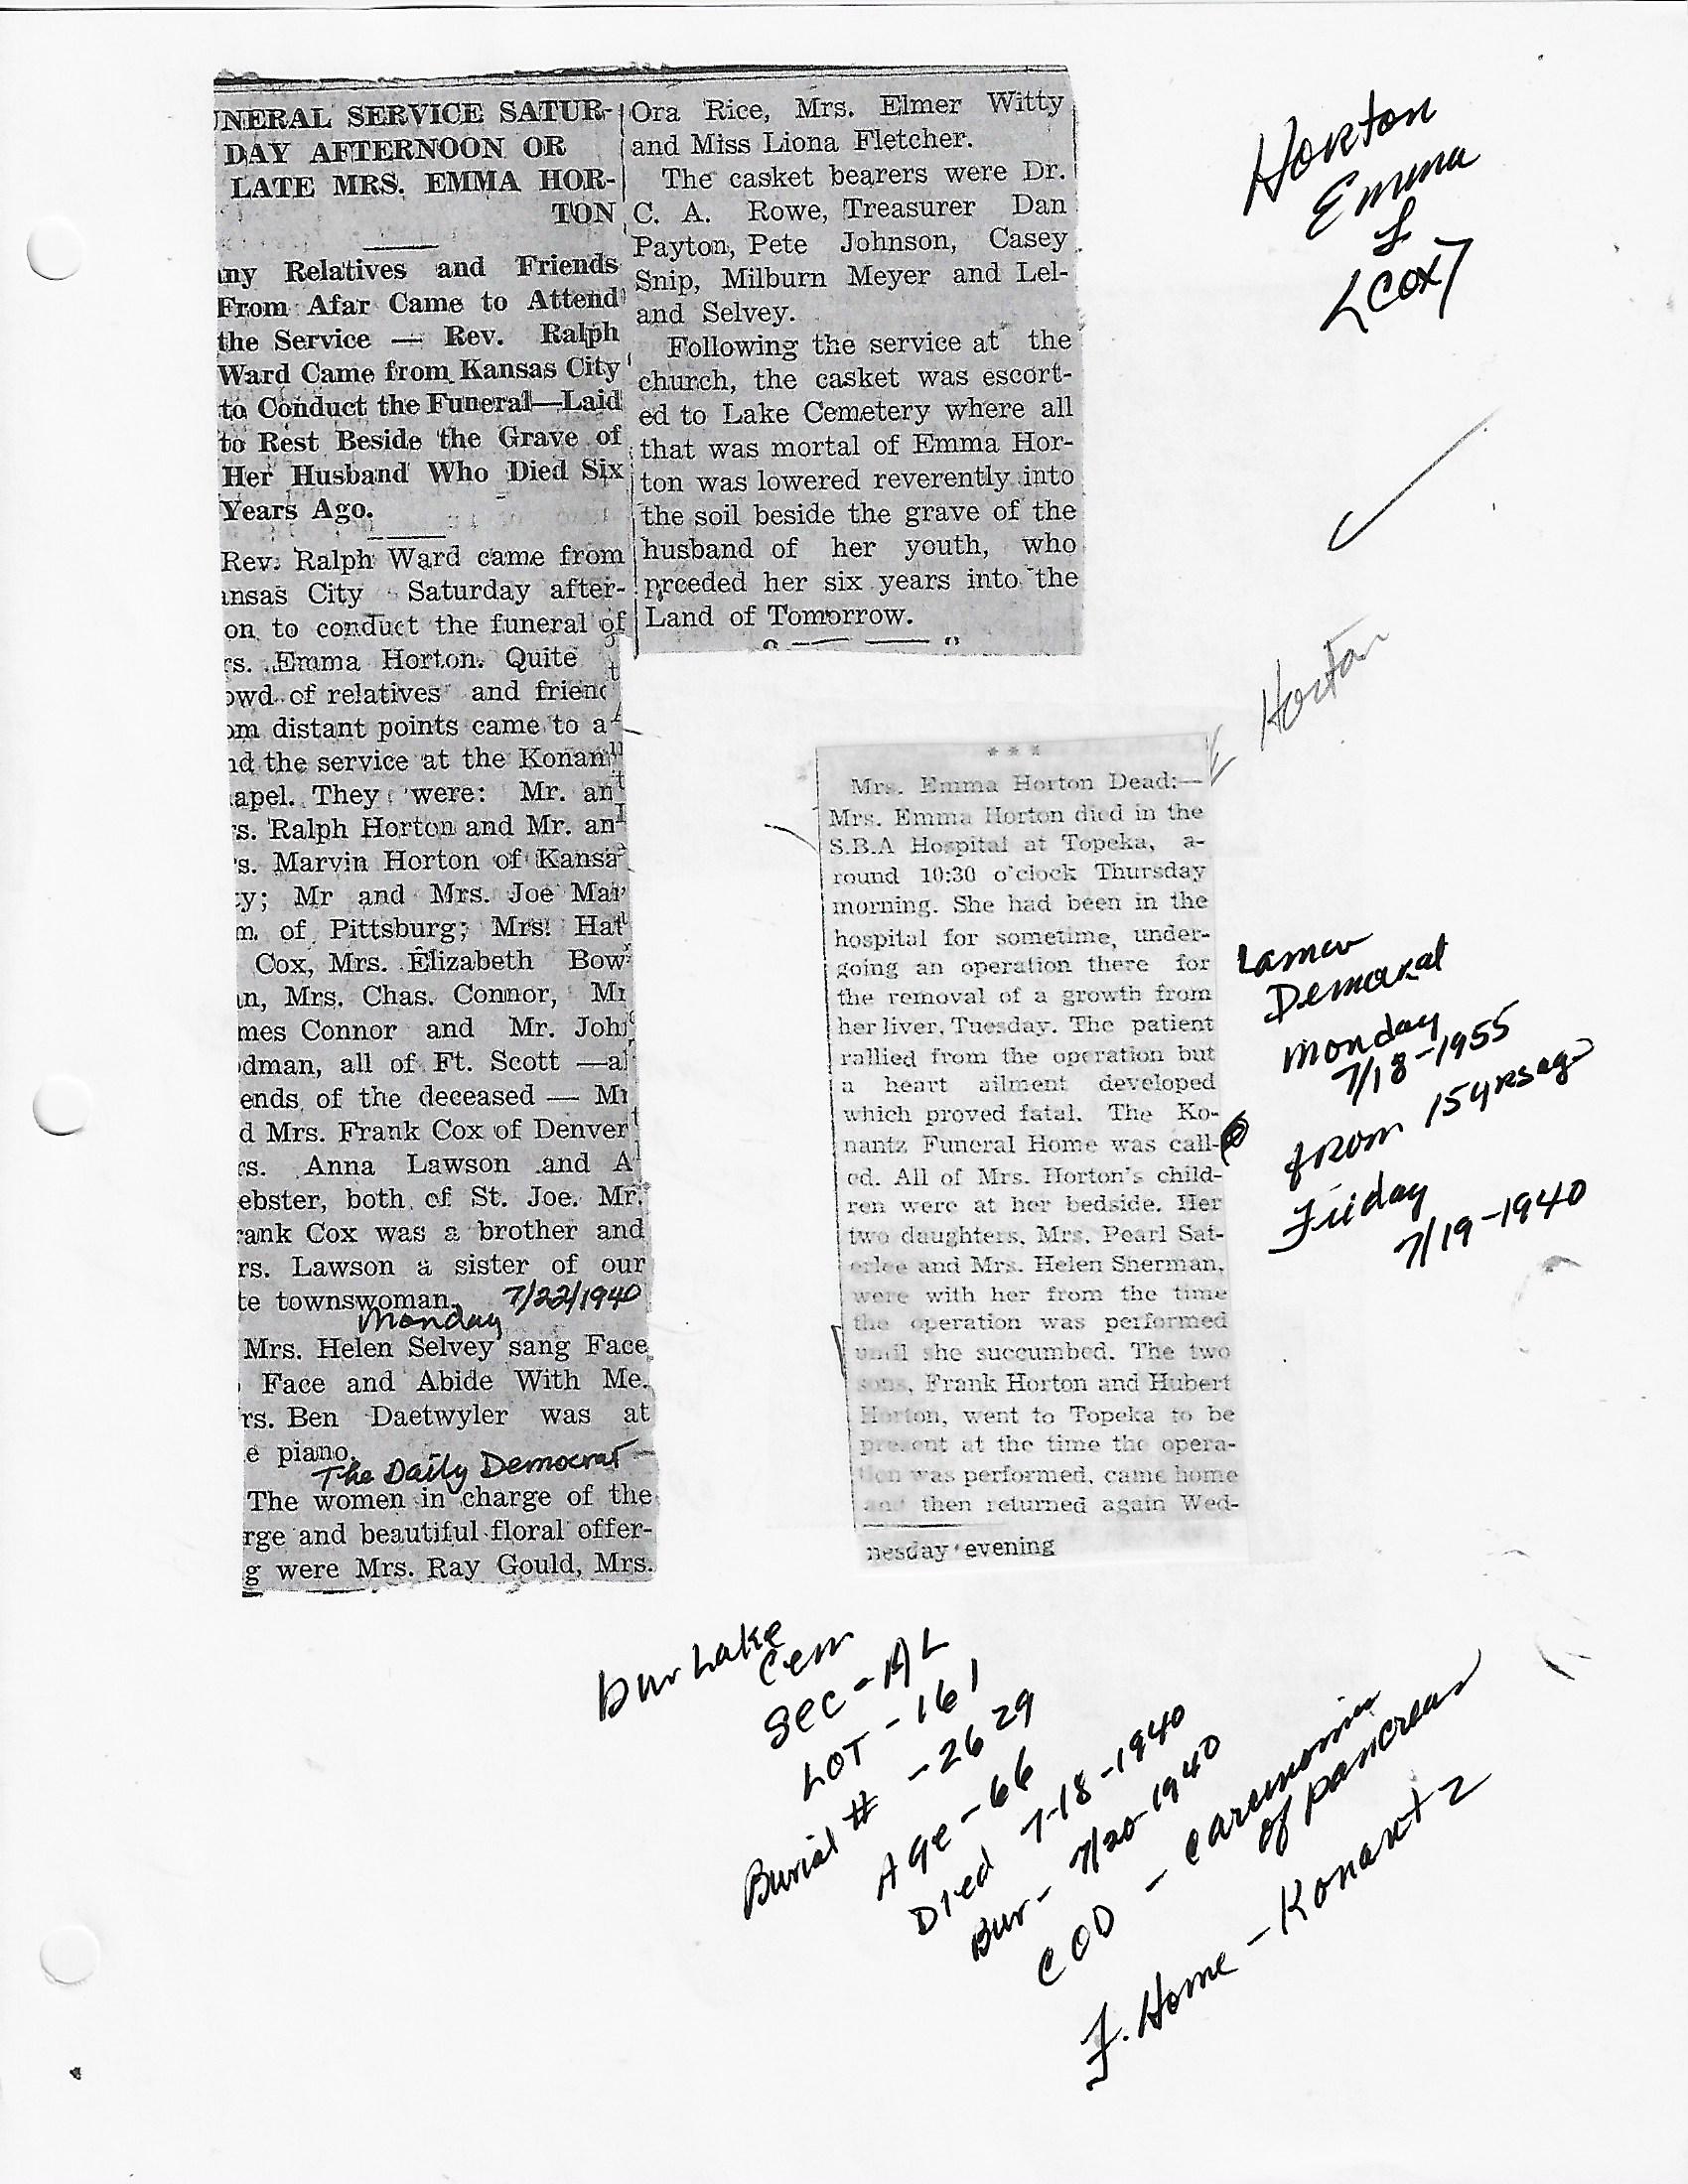 NERAL SERVICE SATUR-
DAY AFTERNOON OR
LATE MRS. EMMA HOR-
TON
ny Relatives and Friends
From Afar Came to Attend
the Service — Rev. Ralph
Ward Came from Kansas City
to Conduct the Funeral—Laid
to Rest Beside the Grave of
Her Husband Who Died Six
Years Ago.
Rev. Ralph Ward came from
ansas City Saturday after-
on to conduct the funeral of
rs. Emma Horton. Quite
owd of relatives and frien
om distant points came to a
nd the service at the Konan
apel. They were: Mr. an
rs. Ralph Horton and Mr. an
s. Marvin Horton of Kansa
ty; Mr and Mrs. Joe Mar
m of Pittsburg; Mrs. Hat
Cox, Mrs. Elizabeth Bow
n, Mrs. Chas. Connor, Mr
mes Connor and Mr. Joh
dman, all of Ft. Scott —al
ends of the deceased — Mr
d Mrs. Frank Cox of Denver
rs. Anna Lawson and A
ebster, both of St. Joe. Mr.
rank Cox was a brother and
rs. Lawson a sister of our
te townswoman.
7/22/1940
Monday
Mrs. Helen Selvey sang Face
Face and Abide With Me.
rs. Ben Daetwyler was at
e piano.
The Daily Democrat
The women in charge of the
rge and beautiful floral offer-
g were Mrs. Ray Gould, Mrs.
Ora Rice, Mrs. Elmer Witty
and Miss Liona Fletcher.
The casket bearers were Dr.
C. A. Rowe, Treasurer Dan
Payton, Pete Johnson, Casey
Snip, Milburn Meyer and Lel-
and Selvey.
Following the service at the
church, the casket was escort-
ed to Lake Cemetery where all
that was mortal of Emma Hor-
ton was lowered reverently into
the soil beside the grave of the
husband of her youth, who
prceded her six years into the
Land of Tomorrow.
Horton
Emma
L
<COX7
E Horton
* * *
Mrs. Emma Horton Dead:—
Mrs. Emma Horton died in the
S.B.A Hospital at Topeka, a-
round 10:30 o'clock Thursday
morning. She had been in the
hospital for sometime, under-
going an operation there for
the removal of a growth from
her liver, Tuesday. The patient
rallied from the operation but
a heart ailment developed
which proved fatal. The Ko-
nantz Funeral Home was call-
ed. All of Mrs. Horton's child-
ren were at her bedside. Her
two daughters, Mrs. Pearl Sat-
erlee and Mrs. Helen Sherman,
were with her from the time
the operation was performed
until she succumbed. The two
sons, Frank Horton and Hubert
Horton, went to Topeka to be
present at the time the opera-
tion was performed, came home
and then returned again Wed-
nesday evening
Lamar
Democrat
Monday
7/18-1955
from 15 yrs ago
Friday
7/19-1940
Bur Lake
Cem
Sec-AL
LOT-161
Burial # -2629
Age-66
Died 7-18-1940
Bur- 7/20-1940
COD - Carcinoma
of pancreas
F. Home - Konantz